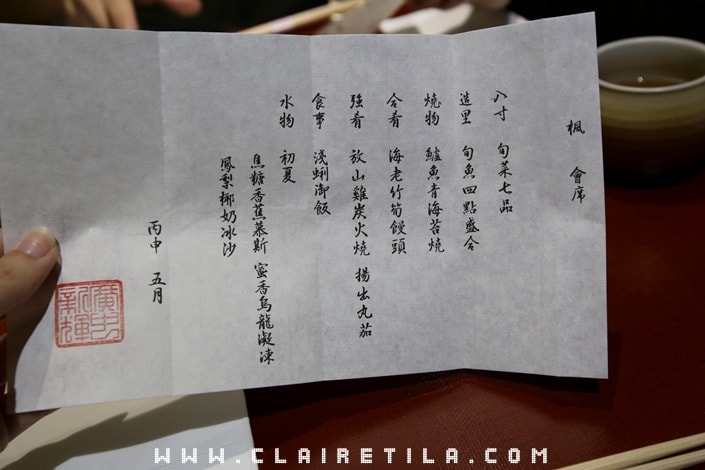 楓 會席
八寸 旬菜七品
造里 旬魚四點盛合
燒物 鱸魚青海苔燒
合肴 海老竹筍饅頭
強肴 放山雞炭火燒 揚出丸茄
食事 淺蜊御飯
水物 初夏
焦糖香蕉慕斯 蜜香烏龍凝凍
鳳梨椰奶冰沙
丙申 五月
WWW.CLAIRETILA.COM